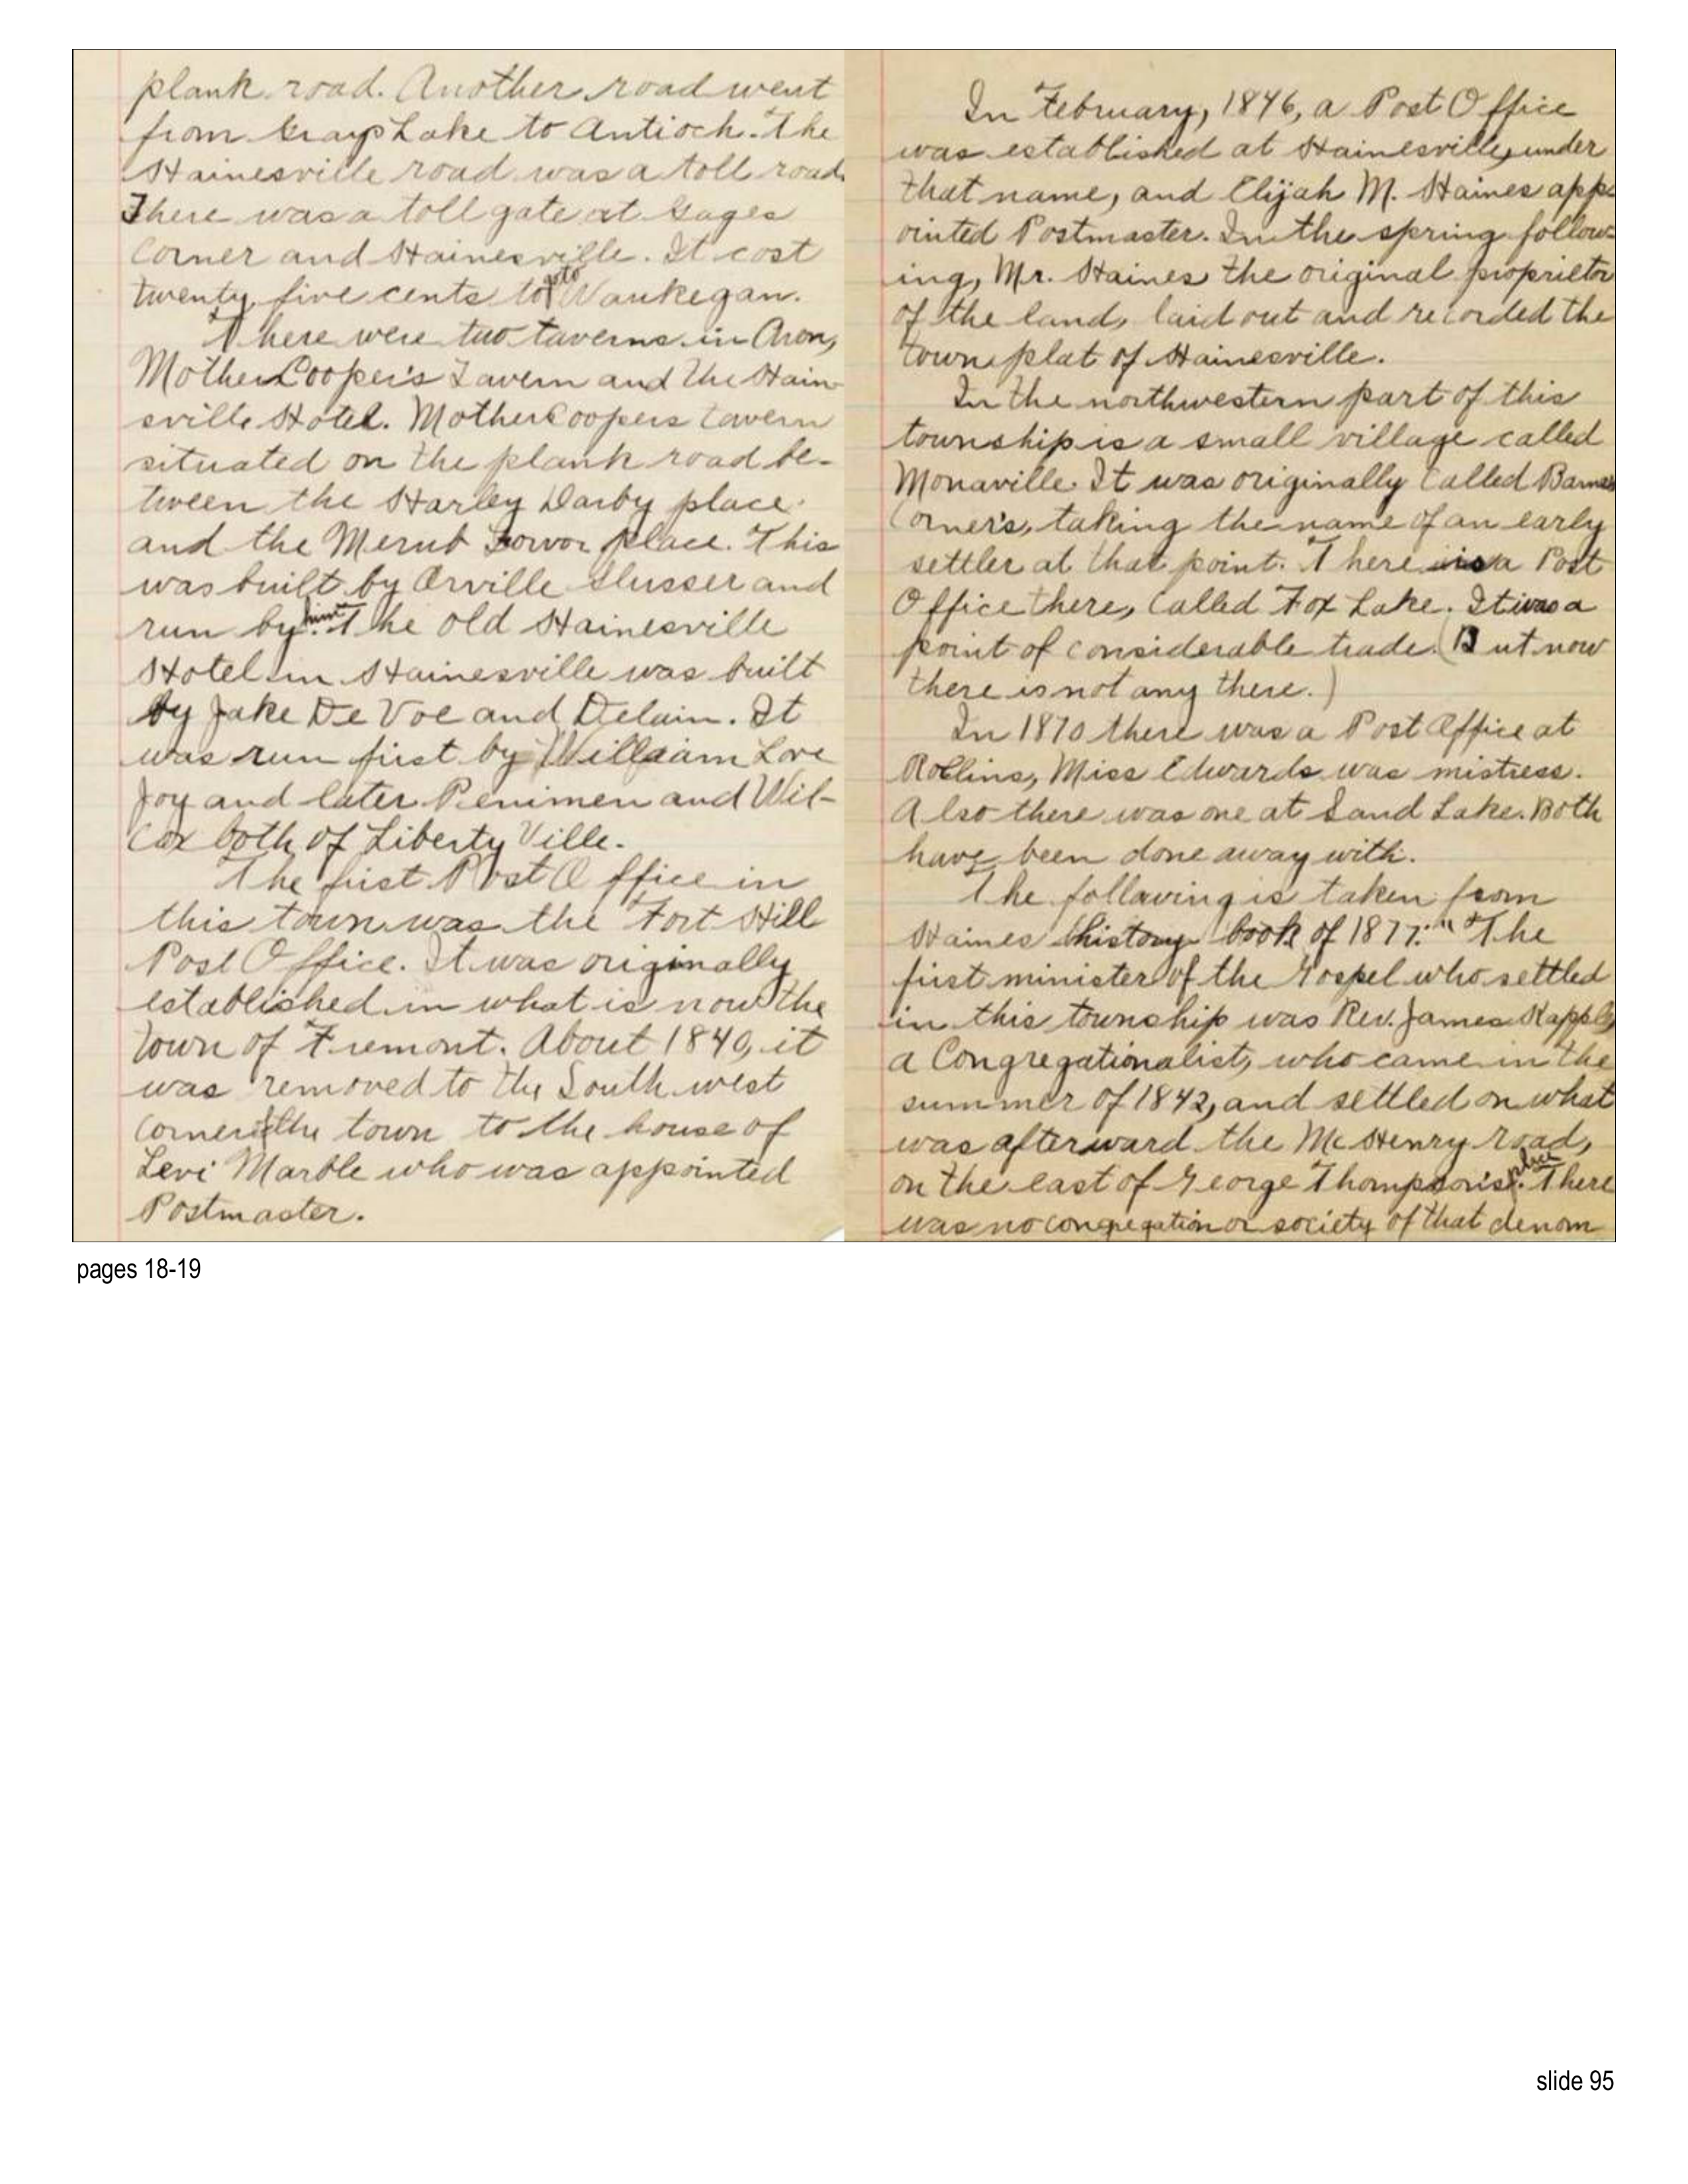 plank road. Another road went
from Grays Lake to Antioch. The
Hainesville road was a toll road
There was a toll gate at Gages
Corner and Hainesville. It cost
twenty five cents to go to Waukegan.
There were two taverns in Avon,
Mother Cooper's Tavern and the Hain
sville Hotel. Mother Coopers tavern
situated on the plank road be-
tween the Harley Darby place
and the place. This
was built by Orville Slusser and
run by him. The old Hainesville
Hotel in Hainesville was built
by Jake De Voe and Delain. It
was run first by William Love
Joy and later and Wil-
cox both of Liberty Ville.
The first Post Office in
this town was the Fort Hill
Post Office. It was originally
established in what is now the
town of Fremont. About 1840, it
was removed to the South west
corner of the town to the house of
Levi Marble who was appointed
Postmaster.
In February, 1846, a Post Office
was established at Hainesville, under
that name, and Elijah M. Haines app-
ointed Postmaster. In the spring follow-
ing, Mr. Haines the original proprietor
of the land, laid out and recorded the
town plat of Hainesville.
In the northwestern part of this
township is a small village called
Monaville. It was originally called Barnes
Corner's, taking the name of an early
settler at that point. There is a Post
Office there, called Fox Lake. It was a
point of considerable trade. (But now
there is not any there.)
In 1870 there was a Post Office at
Rollins, Miss Edwards was mistress.
Also there was one at Sand Lake. Both
have been done away with.
The following is taken from
Haines history book of 1877: " "The
first minister of the Gospel who settled
in this township was Rev. James Kapple,
a Congregationalist, who came in the
summer of 1842, and settled on what
was afterward the McHenry road,
on the east of George Thompson's place. There
was no congregation or society of that denom
pages 18-19
slide 95